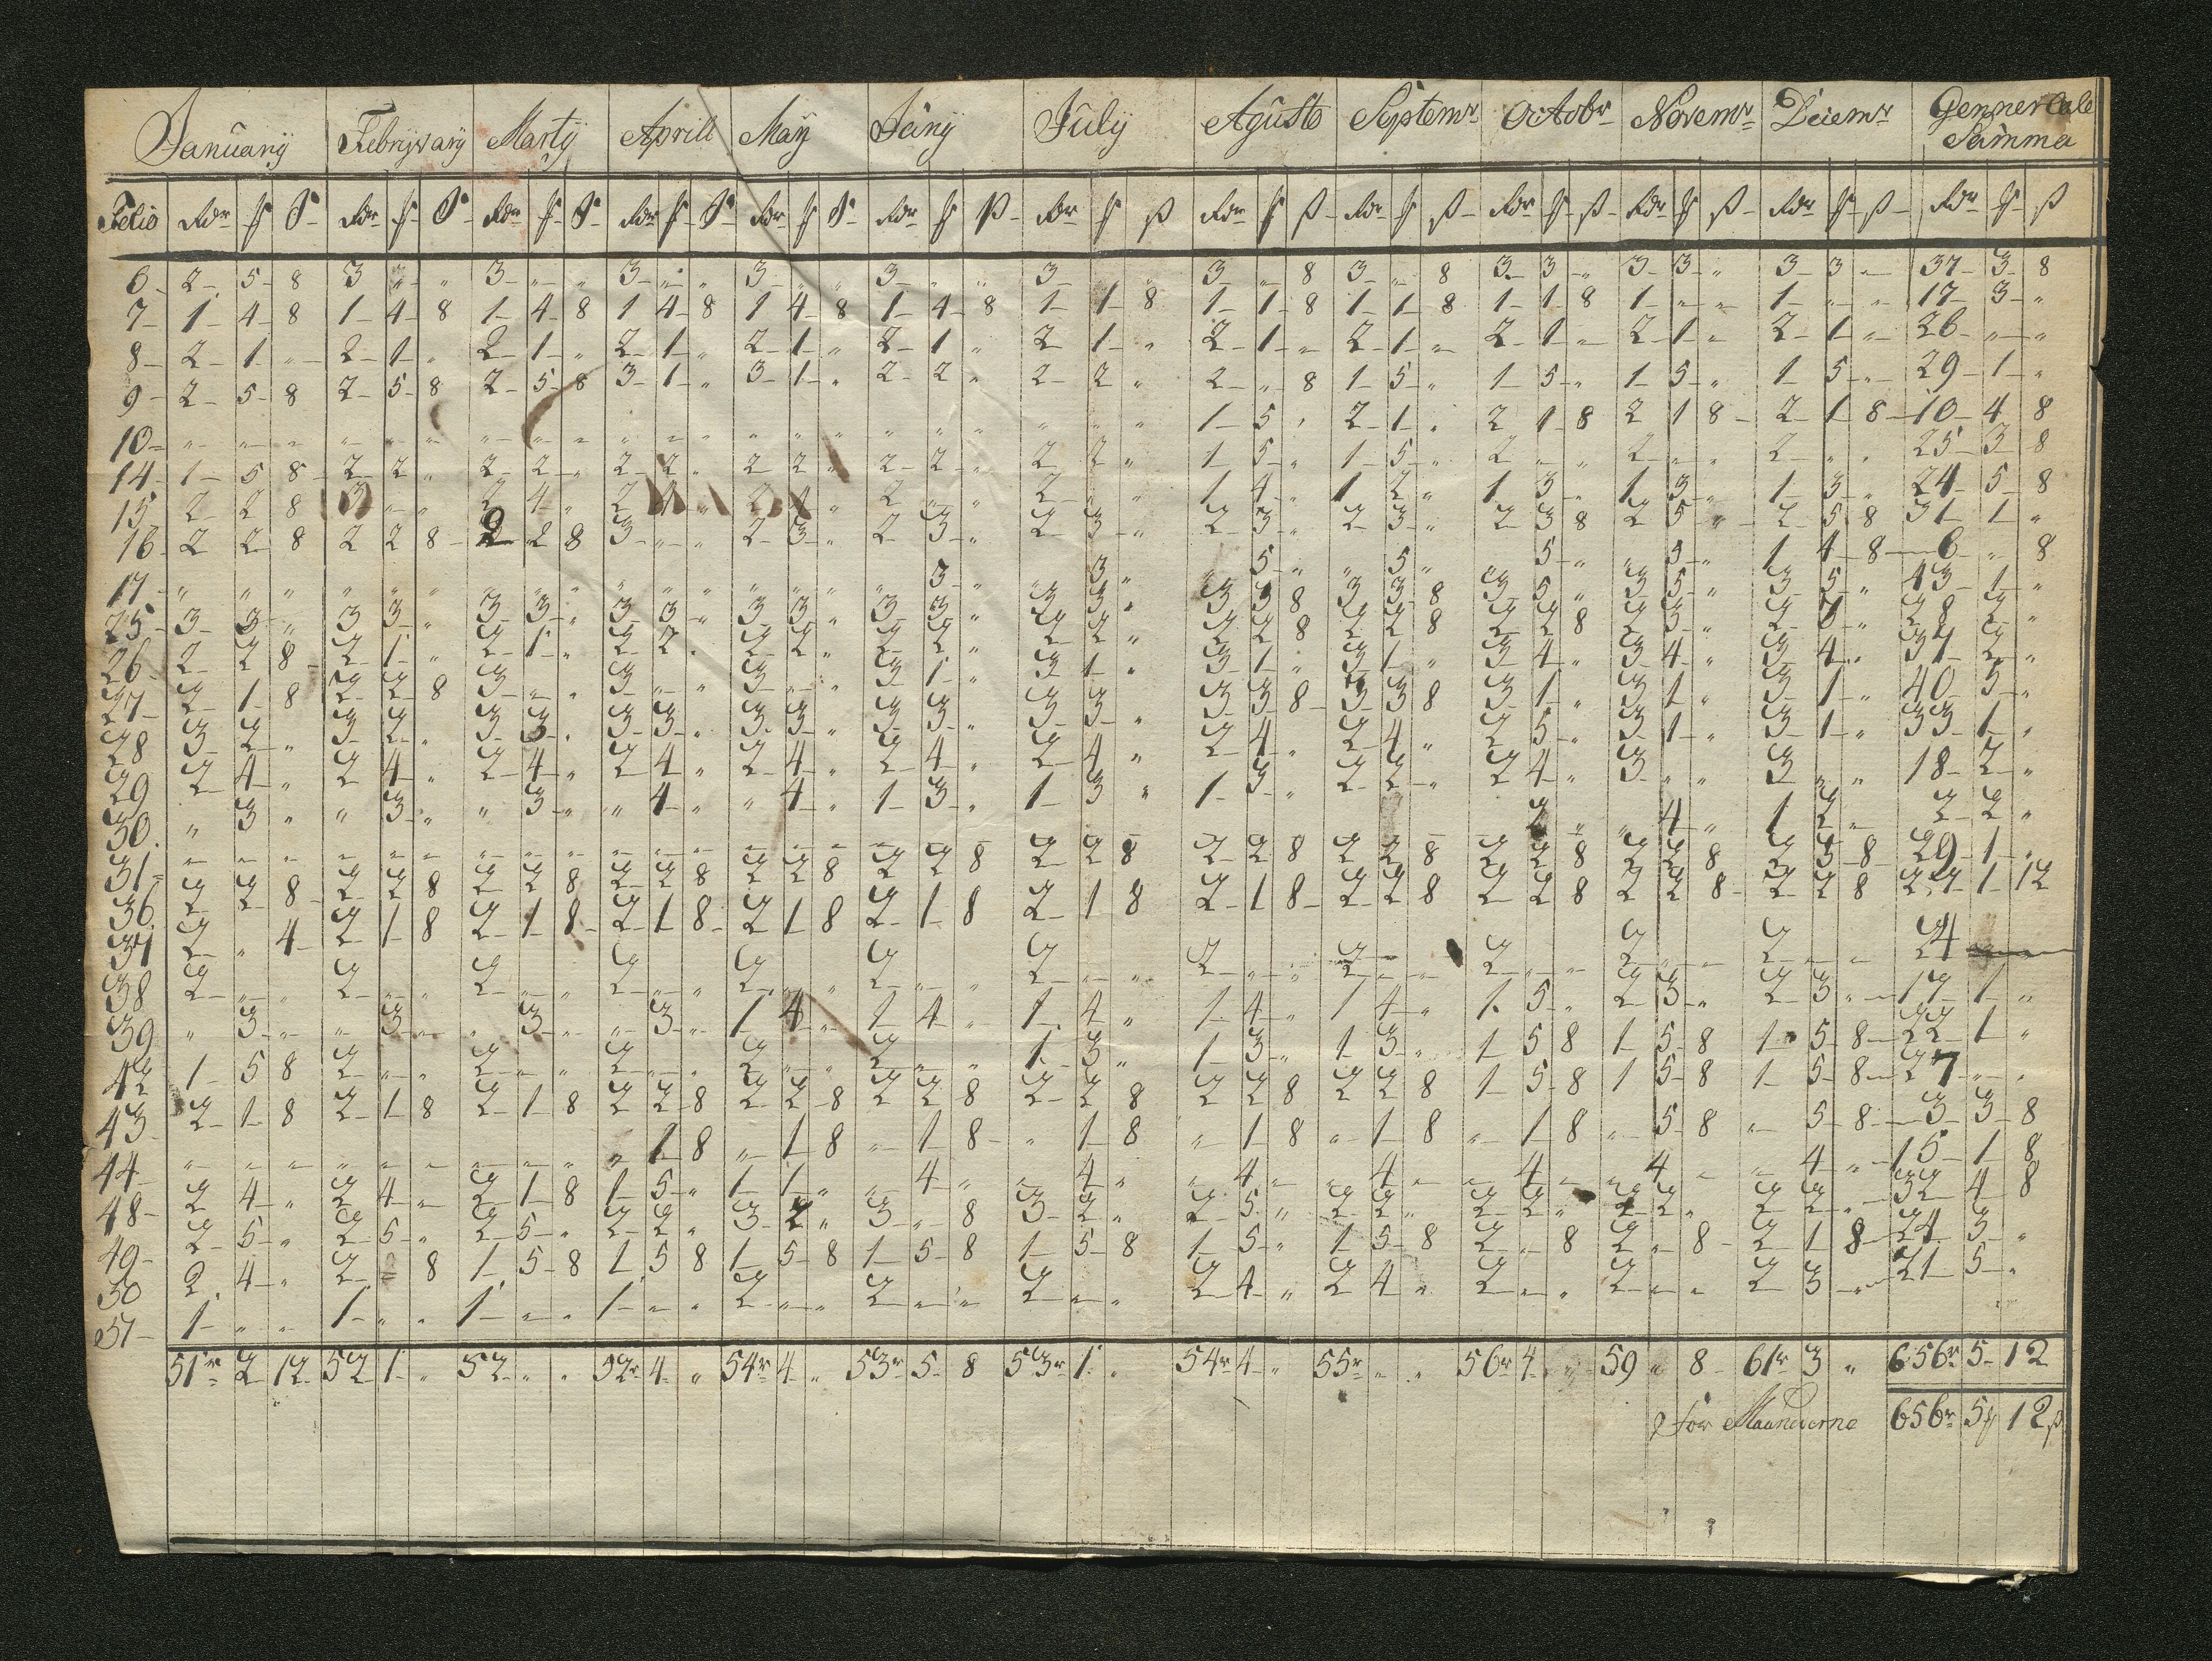 Januarij Februarij Martij Aprill Maij Junij Julij Agusto Septemr Octobr Novemr Deiemr Gennerale
Summa
Folio Rdr
6 2 5 8 3 " " 3 " " 3 " " 3 " " 3 " " 3 " " 3 " 8 3 " 8 3 3 " 3 3 " 3 3 " 37 3 8
7 1 4 8 1 4 8 1 4 8 1 4 8 1 4 8 1 4 8 1 1 8 1 1 8 1 1 8 1 1 8 1 " " 1 " " 17 3 "
8 2 1 " 2 1 " 2 1 " 2 1 " 2 1 " 2 1 " 2 1 " 2 1 " 2 1 " 2 1 " 2 1 " 2 1 " 26 " "
9 2 5 8 2 5 8 2 5 8 3 1 " 3 1 " 2 2 " 2 2 " 2 " 8 1 5 " 1 5 " 1 5 " 1 5 " 29 1 "
10 " " " " " " " " " " " " " " " " " " " " " 1 5 " 2 1 " 2 1 8 2 1 8 2 1 8 10 4 8
14 1 5 8 2 2 " 2 2 " 2 2 " 2 2 " 2 2 " 2 2 " 1 5 " 1 5 " 2 " " 2 " " 2 " " 25 3 8
15 2 2 8 3 " " 2 4 " 2 4 " 2 4 " 2 " " 2 " " 1 4 " 1 2 " 1 3 " 1 3 " 1 3 " 24 5 8
16 2 2 8 2 2 8 2 2 8 3 " " 2 3 " 2 3 " 2 3 " 2 3 " 2 3 " 2 3 8 2 5 " 2 5 8 31 1 "
17 " " " " " " " " " " " " " " " " 3 " " 3 " " 5 " " 5 " " 5 " " 5 " 1 4 8 6 " 8
25 3 3 " 3 3 " 3 3 " 3 3 " 3 3 " 3 3 " 3 3 " 3 3 8 3 3 8 3 5 " 3 5 " 3 5 " 43 1 "
26 2 2 8 2 1 " 2 1 " 2 2 " 2 2 " 2 2 " 2 2 " 2 2 8 2 2 8 2 2 8 2 3 " 2 3 " 28 2 "
27 2 1 8 2 2 8 3 " " 3 " " 3 " " 3 1 " 3 1 " 3 1 " 3 1 " 3 4 " 3 4 " 3 4 " 37 2 "
28 3 2 " 3 2 " 3 3 " 3 3 " 3 3 " 3 3 " 3 3 " 3 3 8 3 3 8 3 1 " 3 1 " 3 1 " 40 3 "
29 2 4 " 2 4 " 2 4 " 2 4 " 2 4 " 2 4 " 2 4 " 2 4 " 2 4 " 2 5 " 3 1 " 3 1 " 33 1 "
30 " 3 " " 3 " " 3 " " 4 " " 4 " 1 3 " 1 3 " 1 3 " 2 2 " 2 4 " 3 " " 3 " " 18 2 "
31 " " " " " " " " " " " " " " " " " " 2 " " 4 " 1 2 " 2 2 "
36 2 2 8 2 2 8 2 2 8 2 2 8 2 2 8 2 2 8 2 2 8 2 2 8 2 2 8 2 2 8 2 2 8 2 3 8 29 1 "
37 2 " 4 2 1 8 2 1 8 2 1 8 2 1 8 2 1 8 2 1 8 2 1 8 2 2 8 2 2 8 2 2 8 2 2 8 27 1 12
38 2 " " 2 " " 2 " " 2 " " 2 " " 2 " " 2 " " 2 " " 2 " " 2 " " 2 " " 2 " " 24
39 " 3 " " 3 " " 3 " " 3 " 1 4 " 1 4 " 1 4 " 1 4 " 1 4 " 1 5 " 2 3 " 2 3 " 17 1 "
42 1 5 8 2 " " 2 " " 2 " " 2 " " 2 " " 1 3 " 1 3 " 1 3 " 1 5 8 1 5 8 1 5 8 22 1 "
43 2 1 8 2 1 8 2 1 8 2 2 8 2 2 8 2 2 8 2 2 8 2 2 8 2 2 8 1 5 8 1 5 8 1 5 8 27 " "
44 " " " " " " " " " " 1 8 " 1 8 " 1 8 " 1 8 " 1 8 " 1 8 " 1 8 " 5 8 " 5 8 3 3 8
48 2 4 " 2 4 " 2 1 8 1 5 " 1 1 " " 4 " " 4 " " 4 " " 4 " " 4 " " 4 " " 4 " 15 1 8
49 2 5 " 2 5 " 2 5 " 2 2 " 3 2 " 3 " 8 3 2 " 2 5 " 2 2 " 2 2 " 2 2 " 2 2 " 32 4 8
50 2 4 " 2 8 1 5 8 1 5 8 1 5 8 1 5 8 1 5 8 1 5 " 1 5 8 2 " 8 2 " 8 2 1 8 24 3 "
51 1 " " 1 " " 1 " " 1 " " 2 " " 2 " " 2 " " 2 4 " 2 4 " 2 " " 2 " " 2 3 " 21 5 "
51r 2 12 52 1 " 52 " " 52r 4 " 54r 4 " 53r 5 8 53r 1 " 54r 4 " 55r " " 56r 4 " 59 " 8 61r 3 " 656r 5 12
for Maanederne 656r 5 12 ß